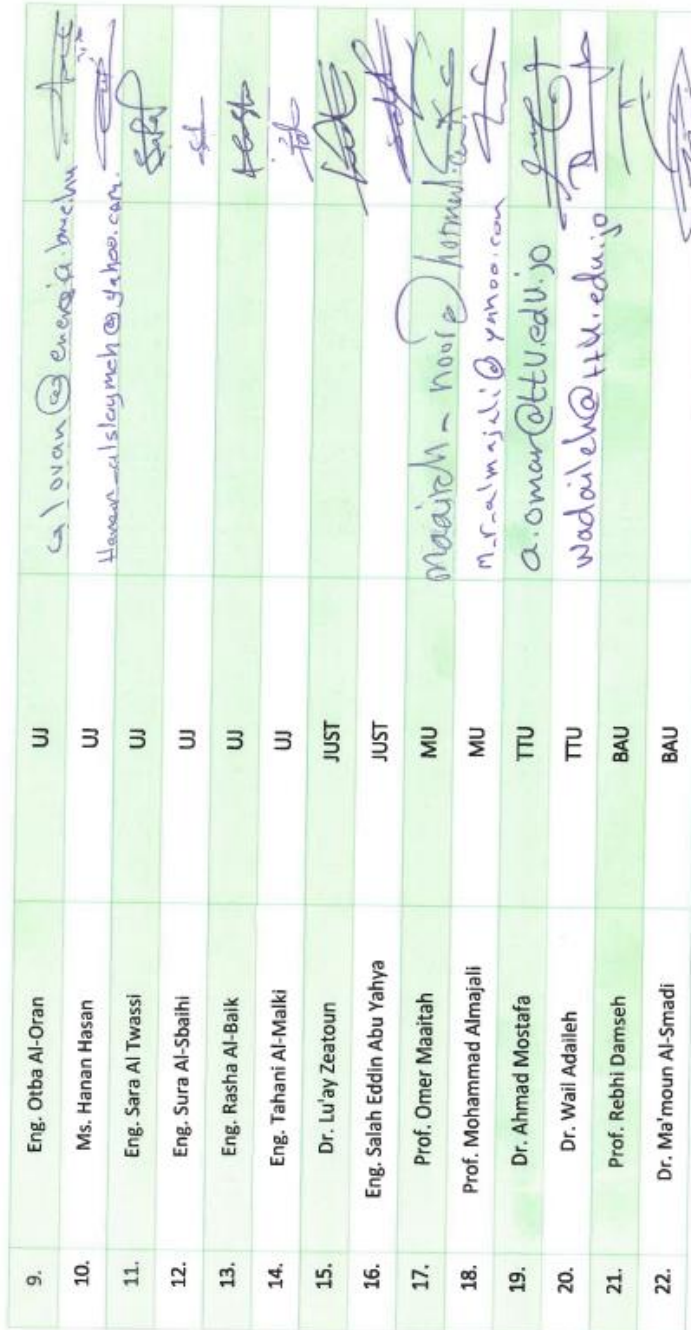 9. Eng. Otba Al-Oran UJ
10. Ms. Hanan Hasan UJ @yahoo.com.
11. Eng. Sara Al Twassi UJ
12. Eng. Sura Al-Sbaihi UJ
13. Eng. Rasha Al-Baik UJ
14. Eng. Tahani Al-Malki UJ
15. Dr. Lu'ay Zeatoun JUST
16. Eng. Salah Eddin Abu Yahya JUST
17. Prof. Omer Maaitah MU
18. Prof. Mohammad Almajali MU m_r_almajali@yahoo.com
19. Dr. Ahmad Mostafa TTU a.omar@ttu.edu.jo
20. Dr. Wail Adaileh TTU wadaileh@ttu.edu.jo
21. Prof. Rebhi Damseh BAU
22. Dr. Ma'moun Al-Smadi BAU